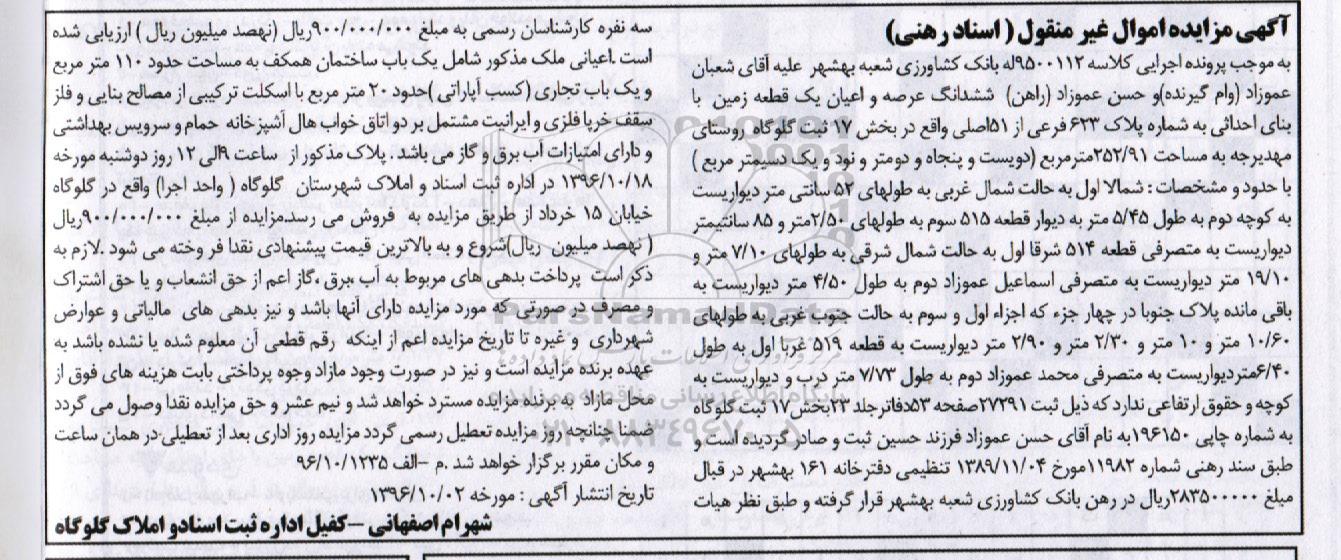 آگهی مزایده اموال غیر منقول ( اسناد رهنی)
به موجب پرونده اجرایی کلاسه ۹۵۰۰۱۱۲له بانک کشاورزی شعبه بهشهر علیه آقای شعبان
عموزاد (وام گیرنده)و حسن عموزاد (راهن) ششدانگ عرصه و اعیان یک قطعه زمین با
بنای احداثی به شماره پلاک ۶۲۳ فرعی از ۵۱اصلی واقع در بخش ۱۷ ثبت گلوگاه روستای
مهدیرجه به مساحت ۲۵۲/۹۱مترمربع (دویست و پنجاه و دومتر و نود و یک دسیمتر مربع )
با حدود و مشخصات : شمالا اول به حالت شمال غربی به طولهای ۵۲ سانتی متر دیواریست
به کوچه دوم به طول ۵/۴۵ متر به دیوار قطعه ۵۱۵ سوم به طولهای ۲/۵۰متر و ۸۵ سانتیمتر
دیواریست به متصرفی قطعه ۵۱۴ شرقا اول به حالت شمال شرقی به طولهای ۷/۱۰ متر و
۱۹/۱۰ متر دیواریست به متصرفی اسماعیل عموزاد دوم به طول ۴/۵۰ متر دیواریست به
باقی مانده پلاک جنوبا در چهار جزء که اجزاء اول و سوم به حالت جنوب غربی به طولهای
۱۰/۶۰ متر و ۱۰ متر و ۲/۳۰ متر و ۲/۹۰ متر دیواریست به قطعه ۵۱۹ غربا اول به طول
۶/۴۰متردیواریست به متصرفی محمد عموزاد دوم به طول ۷/۷۳ متر درب و دیواریست به
کوچه و حقوق ارتفاعی ندارد که ذیل ثبت ۲۷۲۹۱صفحه ۵۳دفاترجلد ۲۲بخش۱۷ ثبت گلوگاه
به شماره چاپی ۱۹۶۱۵۰به نام آقای حسن عموزاد فرزند حسین ثبت و صادر گردیده است و
طبق سند رهنی شماره ۱۱۹۸۲مورخ ۱۳۸۹/۱۱/۰۴ تنظیمی دفترخانه ۱۶۱ بهشهر در قبال
مبلغ ۲۸۳۵۰۰۰۰۰ریال در رهن بانک کشاورزی شعبه بهشهر قرار گرفته و طبق نظر هیات
سه نفره کارشناسان رسمی به مبلغ ۹۰۰/۰۰۰/۰۰۰ریال (نهصد میلیون ریال ) ارزیابی شده
است .اعیانی ملک مذکور شامل یک باب ساختمان همکف به مساحت حدود ۱۱۰ متر مربع
و یک باب تجاری (کسب آپاراتی )حدود ۲۰ متر مربع با اسکلت ترکیبی از مصالح بنایی و فلز
سقف خرپا فلزی و ایرانیت مشتمل بر دو اتاق خواب هال آشپزخانه حمام و سرویس بهداشتی
و دارای امتیازات آب برق و گاز می باشد . پلاک مذکور از ساعت ۹الی ۱۲ روز دوشنبه مورخه
۱۳۹۶/۱۰/۱۸ در اداره ثبت اسناد و املاک شهرستان گلوگاه ( واحد اجرا) واقع در گلوگاه
خیابان ۱۵ خرداد از طریق مزایده به فروش می رسد.مزایده از مبلغ ۹۰۰/۰۰۰/۰۰۰ریال
( نهصد میلیون ریال)شروع و به بالاترین قیمت پیشنهادی نقدا فروخته می شود .لازم به
ذکر است پرداخت بدهی های مربوط به آب ،برق ،گاز اعم از حق انشعاب و یا حق اشتراک
و مصرف در صورتی که مورد مزایده دارای آنها باشد و نیز بدهی های مالیاتی و عوارض
شهرداری و غیره تا تاریخ مزایده اعم از اینکه رقم قطعی آن معلوم شده یا نشده باشد به
عهده برنده مزایده است و نیز در صورت وجود مازاد وجوه پرداختی بابت هزینه های فوق از
محل مازاد به برنده مزایده مسترد خواهد شد و نیم عشر و حق مزایده نقدا وصول می گردد
ضمنا چنانچه روز مزایده تعطیل رسمی گردد مزایده روز اداری بعد از تعطیلی در همان ساعت
و مکان مقرر برگزار خواهد شد .م –الف ۹۶/۱۰/۱۲۳۵
تاریخ انتشار آگهی : مورخه ۱۳۹۶/۱۰/۰۲
شهرام اصفهانی –کفیل اداره ثبت اسنادو املاک گلوگاه
ParsNamadData
پایگاه اطلاع رسانی مناقصه و مزایده
۰۲۱-۸۸۳۴۹۶۷۰-۵